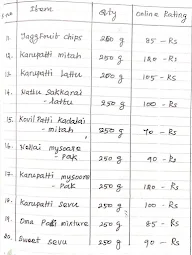 S.No Item Qty Online Rating
11. Jaggfruit chips 250 g 85 - Rs
12. Karupatti mitah 250 g 120 - Rs
13. Karupatti lattu 250 g 105 - Rs
14. Nattu Sakkarai
- lattu 250 g 100 - Rs
15. Kovil Patti Kadalai
- mitah 250 g 70 - Rs
16. Nellai mysoore
- Pak 250 g 90 - Rs
17. Karupatti mysoore
- Pak 250 g 120 - Rs
18. Karupatti Sevu 250 g 100 - Rs
19. Oma Podi mixture 250 g 85 - Rs
20. Sweet sevu 250 g 90 - Rs